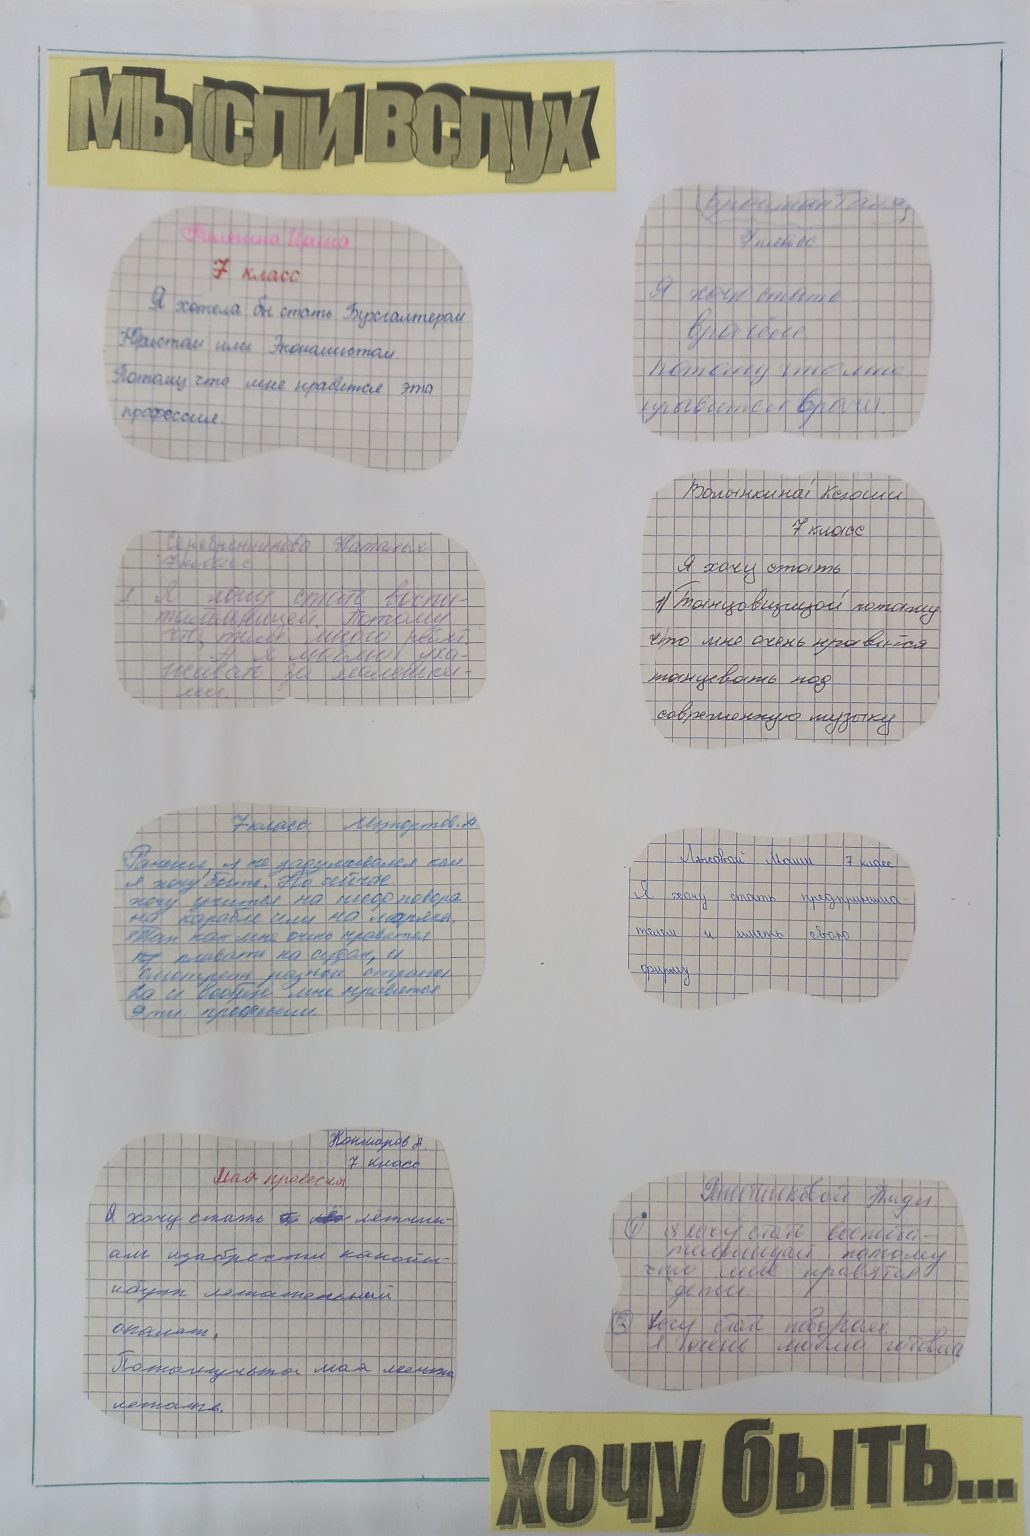 МЫСЛИ ВСЛУХ
7 класс
Я хотела бы стать Бухгалтером
Юристом или Экономистом.
Потому что мне нравится эта
профессия.
7 класс
Я хочу стать
врачём.
Потому что мне
нравится врачи.
Серебренникова Наталья
7 класс
Я хочу стать воспи-
тательницей. Потому
что, там много детей.
А я люблю уха-
живать за маленьки-
ми.
Волынкиной Ксюши
7 класс
Я хочу стать
1) Танцовщицой потому
что мне очень нравится
танцевать под
современную музыку
7 класс
Раньше, я не задумывался кем
я хочу быть. Но сейчас
хочу учится на повора
на карабле или на моряка.
Так как мне очень нравится
плавать на судах, и
смотреть разные страны
Да и вообще мне нравятся
эти профессии.
Маши 7 класс
Я хочу стать предпринима-
телем и иметь свою
фирму
7 класс
Моя професия
Я хочу стать летчи-
ам изабрести какойни-
будь летательный
опалат.
Потомучто моя мечта
летать.
1 Я хочу стать воспита-
тельницой потому
что мне нравятся
дети.
2 Хочу стать поваром.
Я очень люблю готовить
ХОЧУ БЫТЬ...